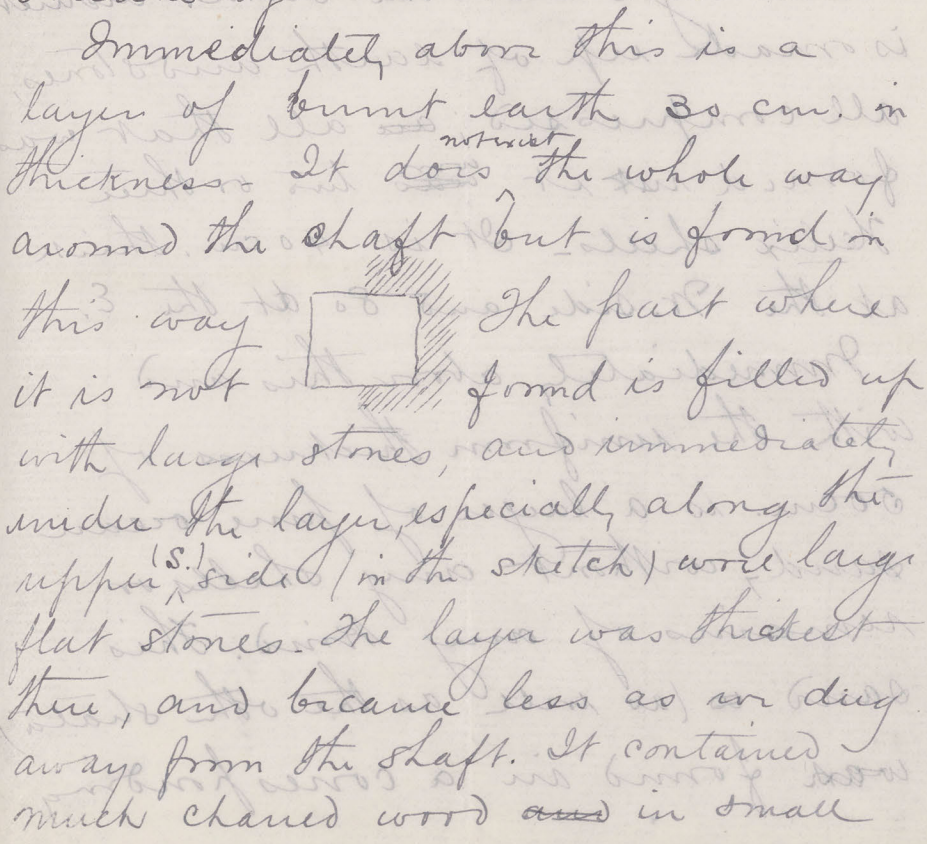 Immediately above this is a
layer of burnt earth 30 cm. in
thickness. It does not exist the whole way
around the shaft but is found in
this way The part where
it is not found is filled up
with large stones, and immediately
under the layer, especially along the
upper (S.) side (in the sketch) were large
flat stones. The layer was thickest
there, and became less as we dug
away from the shaft. It contained
much charred wood and in small